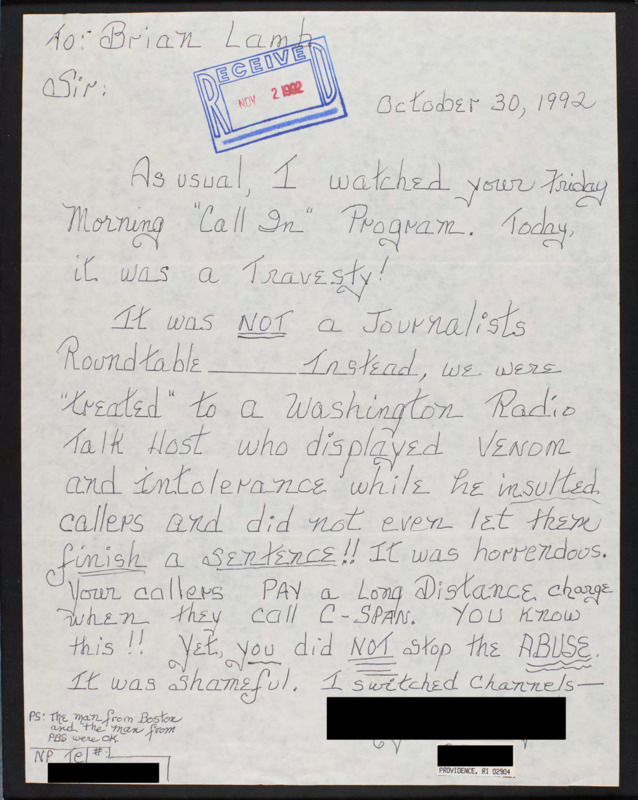 To: Brian Lamb
Sir:
RECEIVED
NOV 2 1992
October 30, 1992
As usual, I watched your Friday
Morning "Call In" Program. Today,
it was a Travesty!
It was NOT a Journalists
Roundtable ______ Instead, we were
"treated" to a Washington Radio
Talk Host who displayed VENOM
and intolerance while he insulted
callers and did not even let them
finish a sentence!! It was horrendous.
Your callers PAY a Long Distance charge
when they call C-SPAN. YOU KNOW
this!! Yet, you did NOT stop the ABUSE.
It was shameful. I switched channels—
PS: The man from Boston
and the man from
PBS were OK.
NP Tel #:
PROVIDENCE, RI 02904